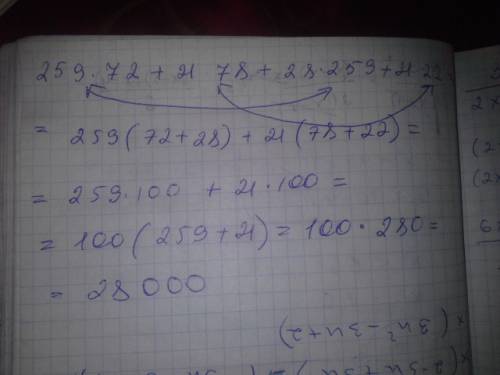 259·72 + 21 78 + 28·259 + 21 22
= 259(72+28) + 21(78+22) =
= 259·100 + 21·100 =
= 100(259+21) = 100·280 =
= 28000
× (3n² - 3n + 2)